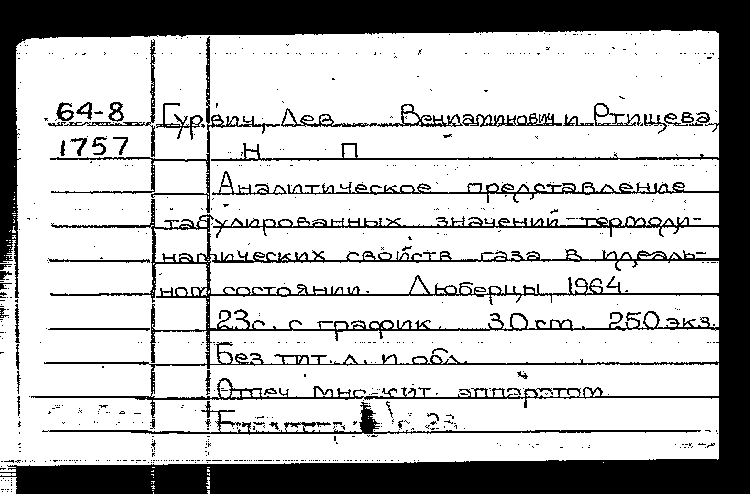 64-8 Гурвич, Лев Вениаминович и Ртищева,
1757 Н П
Аналитическое представление
табулированных значений термоди-
намических свойств газа в идеаль-
ном состоянии. Люберцы, 1964.
23с. с график. 30 см. 250 экз.
Без тит. л. и обл.
Отпеч. множит. аппаратом
с. 23